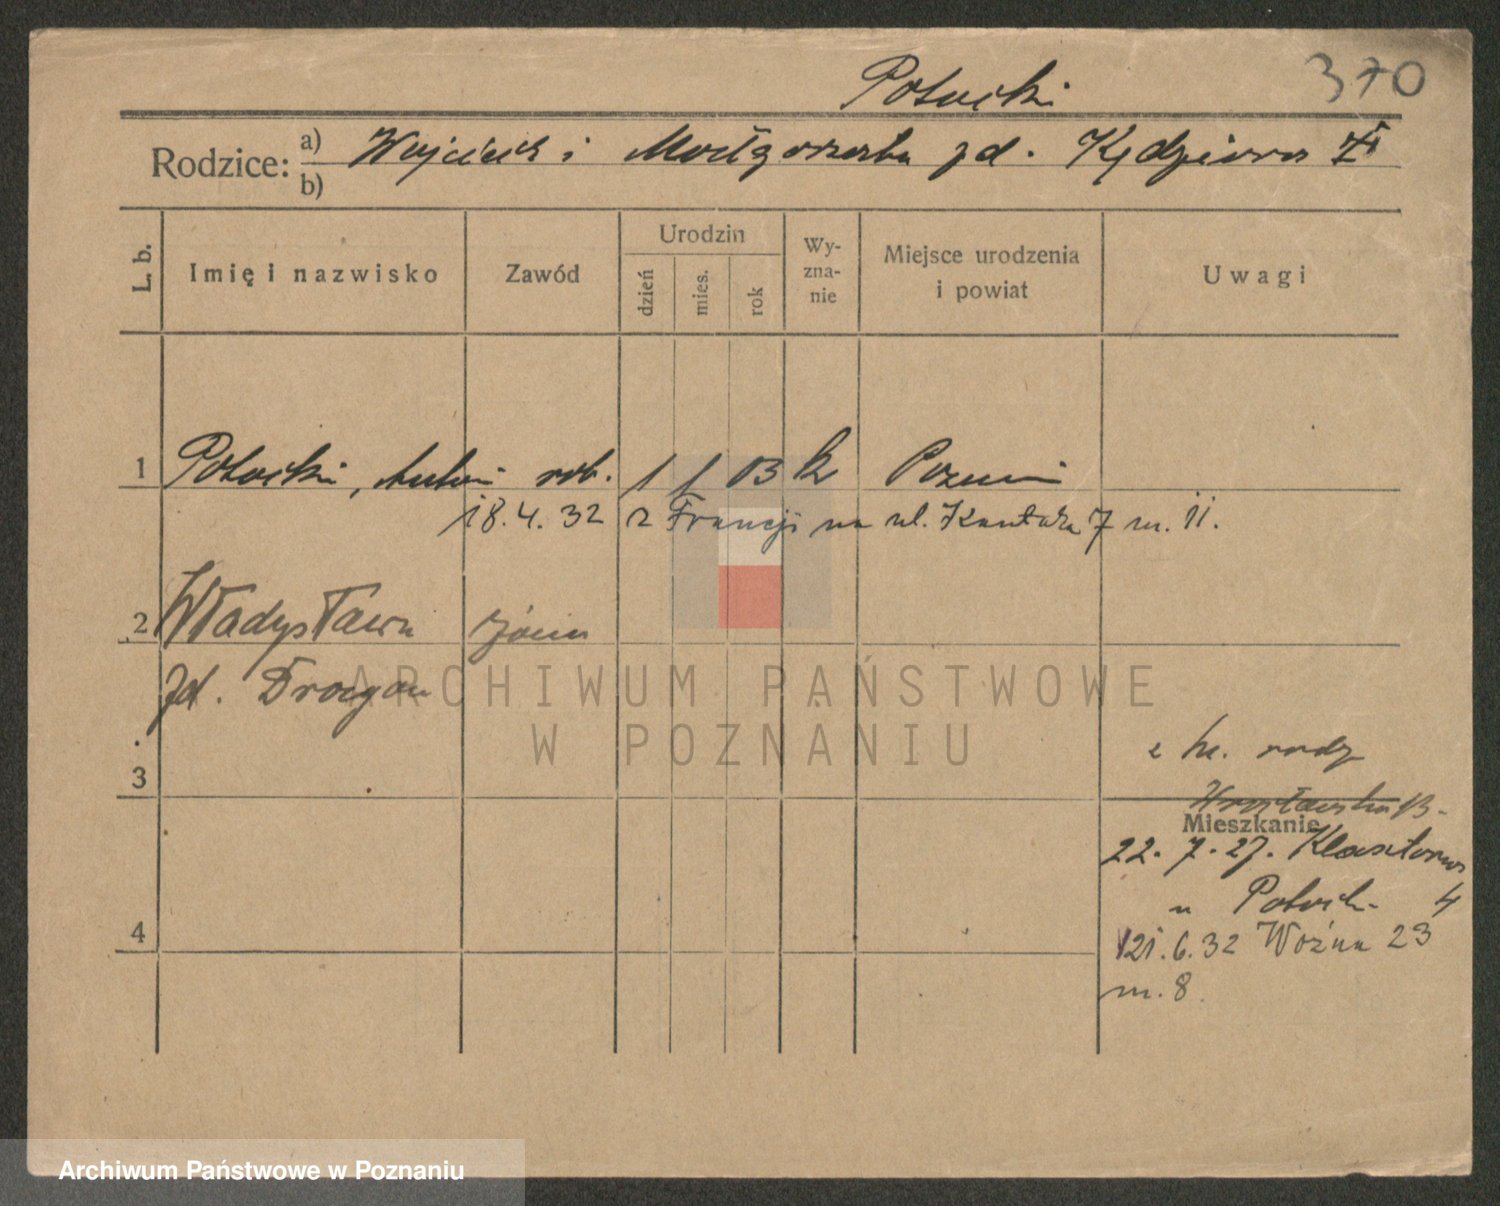 Potocki 370
Rodzice: a) Wojciech i Małgorzata zd. Kędziora
b)
L. b. Imię i nazwisko Zawód Urodzin dzień mies. rok Wy-zna-nie Miejsce urodzenia i powiat Uwagi
1 Potocki, Antoni rob. 1 1 03 k Poznań
18.4.32 z Francji na ul. Kantaka 7 m. 11.
2 Władysława żona
zd.
ARCHIWUM PAŃSTWOWE
W POZNANIU
3
Wrocławska 13
Mieszkanie
22.7.27. Klasztorna
u Potock. 4
4
21.6.32 Woźna 23
m. 8
Archiwum Państwowe w Poznaniu